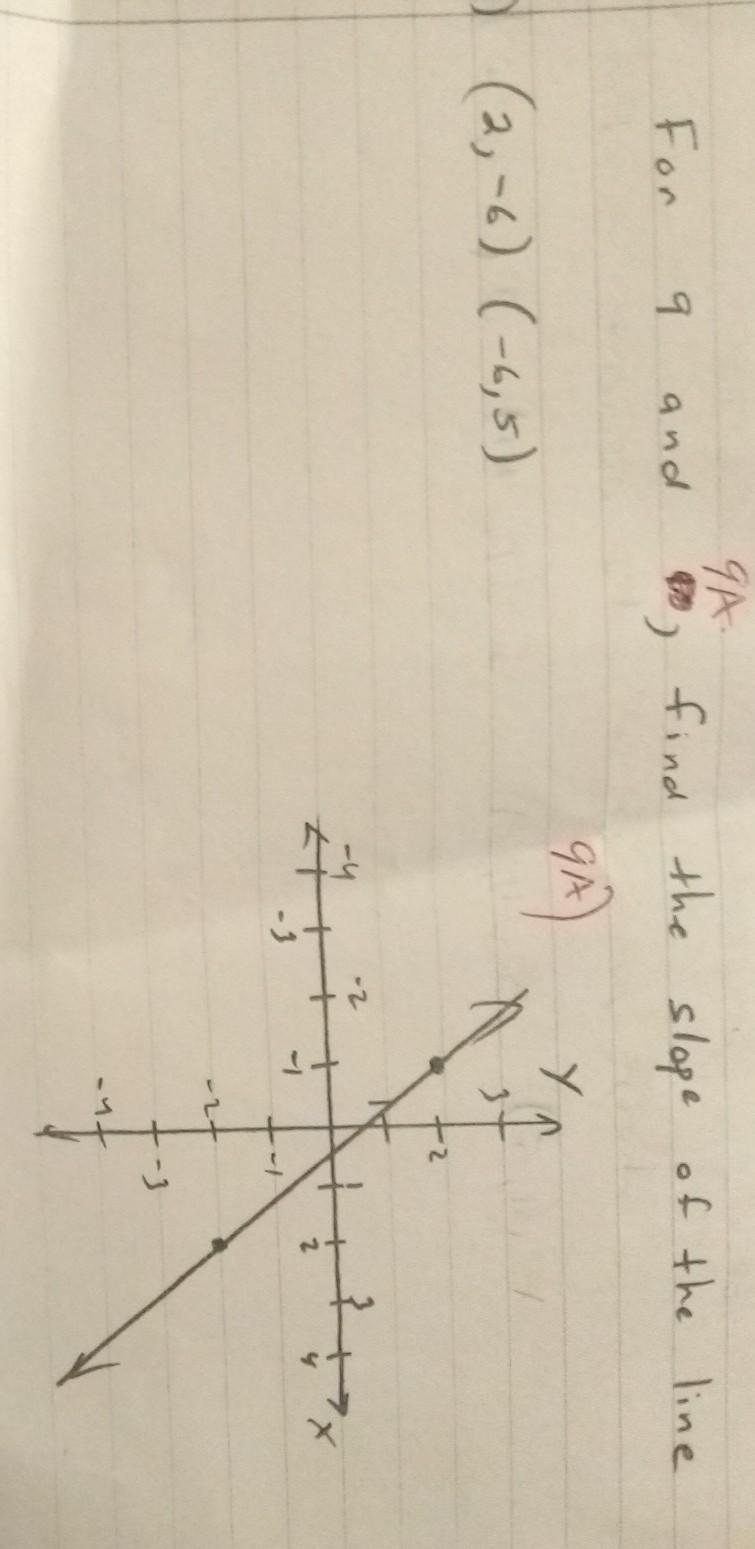 9A.
For 9 and , find the slope of the line
) (2,-6) (-6,5)
9A)
Y
3
2
1
-4 -3 -2 -1 1 2 3 4 X
-1
-2
-3
-4